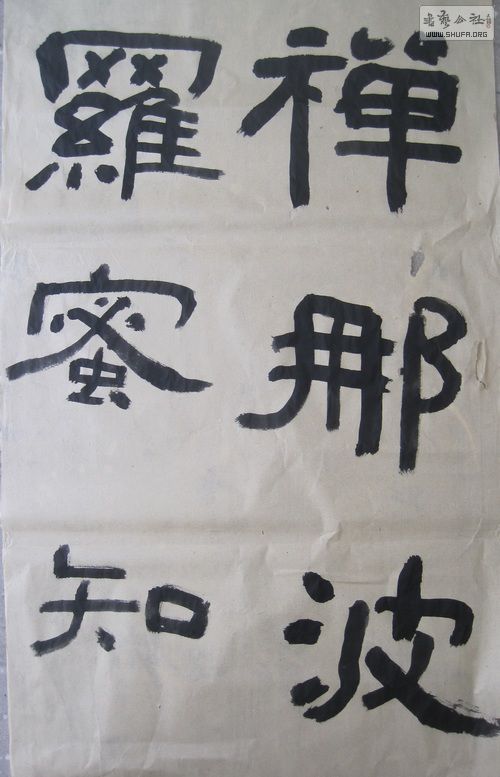 禪那波
羅蜜知
书艺公社
WWW.SHUFA.ORG